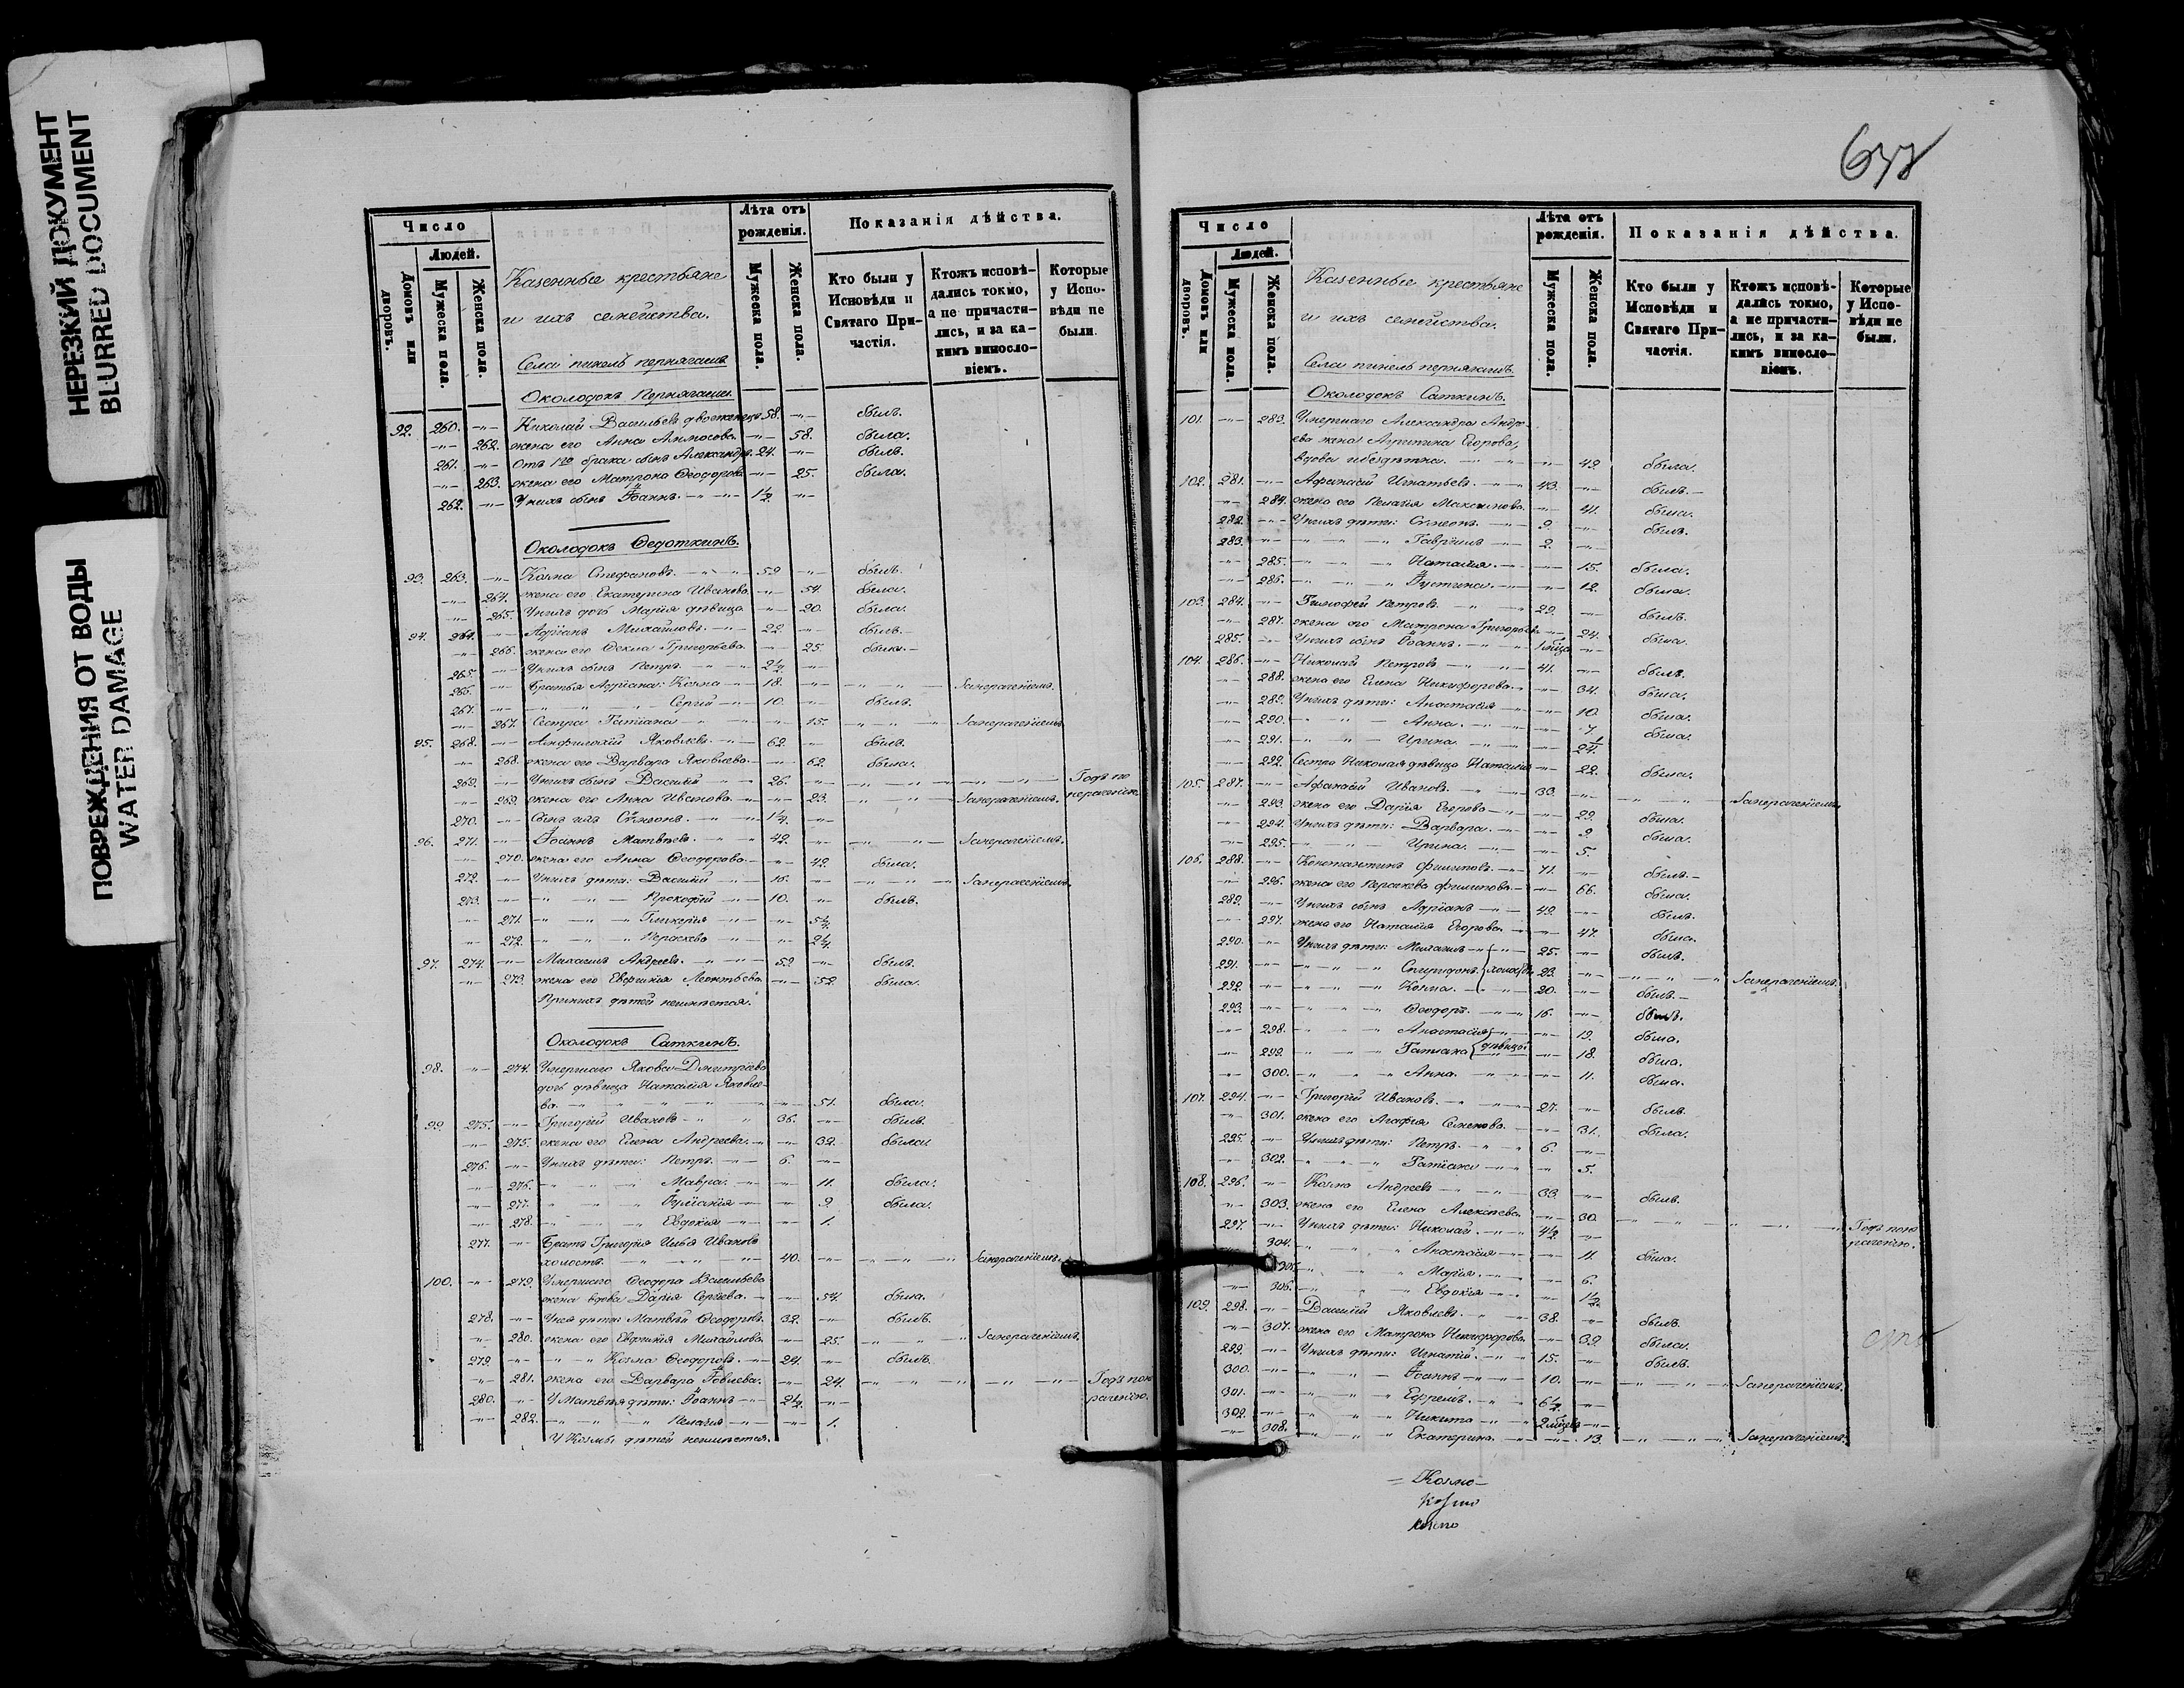 НЕРЕЗКИЙ ДОКУМЕНТ
BLURRED DOCUMENT
ПОВРЕЖДЕНИЯ ОТ ВОДЫ
WATER DAMAGE
Число
Людей.
Домовъ или дворовъ.
Мужеска пола.
Женска пола.
Казенные крестьяне
и ихъ семейства.
Лѣта отъ рожденія.
Мужеска пола.
Женска пола.
Показанія дѣйства.
Кто были у Исповѣди и Святаго Причастія.
Ктожъ исповѣдались токмо, а не причастились, и за какимъ винословіемъ.
Которые у Исповѣди не были.
Околодокъ Пернягаши.
92. 260. Николай Васильевъ двоеженецъ 58. былъ.
262. жена его Анна Амосова 58. была.
261. Отъ 1го брака сынъ Александръ 24. былъ.
263. жена его Матрона Ѳеодорова 25. была.
262. У нихъ сынъ Іоаннъ. 1½
Околодокъ Ѳедоткинъ.
93. 263. Козма Стефановъ. 59 былъ.
264. жена его Екатерина Иванова 54. была.
265. У нихъ дочь Марія дѣвица 20. была.
94. 264. Адріанъ Михайловъ 22 былъ.
266. жена его Ѳекла Григорьева 25 была.
265. У нихъ сынъ Петръ. 2½
266. Братья Адріана: Козма 18. Занерачениемъ.
267. Сергій 10. былъ.
267. Сестра Татіана 15. Занерачениемъ.
95. 268. Амфилохій Яковлевъ 62. былъ.
268. жена его Варвара Яковлева 62. была.
269. У нихъ сынъ Василій 26. Годъ по нераченію.
269. жена его Анна Иванова 23. Занерачениемъ.
270. Сынъ ихъ Симеонъ. 1½
96. 271. Іоаннъ Матвѣевъ 42. Занерачениемъ.
270. жена его Анна Ѳеодорова 42. была.
272. У нихъ дѣти: Василій 16. Занерачениемъ.
273. Прокофій 10. былъ.
271. Гликерія
272. Параскева
97. 274. Михаилъ Андреевъ. 59 былъ.
273. жена его Евфимія Леонтьева 52 была.
При нихъ дѣтей неимѣется.
Околодокъ Саткинъ.
98. 274. Умершаго Якова Дмитріева
дочь дѣвица Наталія Яковле-
ва. 51. была.
99. 275. Григорій Ивановъ 36. былъ.
275. жена его Елена Андреева 32. была.
276. У нихъ дѣти: Петръ. 6.
276. Мавра. 11. была.
277. Іуліанія 9. была.
278. Евдокія 1.
277. Братъ Григорія Илья Ивановъ
холостъ. 40. Занерачениемъ.
100. 279. Умершаго Ѳеодора Васильева
жена вдова Дарія Сергѣева. 54. была.
278. У нея дѣти: Матвѣй Ѳеодоровъ 32. былъ.
280. жена его Евфимія Михайлова 25. Занерачениемъ.
279. Козма Ѳеодоровъ. 24. былъ.
281. жена его Варвара Іовлева. 24. Годъ по нераченію.
280. У Матвѣя дѣти: Іоаннъ 2½
282. Пелагія 1.
У Козмы дѣтей неимѣется.
Число
Людей.
Домовъ или дворовъ.
Мужеска пола.
Женска пола.
Казенные крестьяне
и ихъ семейства.
Лѣта отъ рожденія.
Мужеска пола.
Женска пола.
Показанія дѣйства.
Кто были у Исповѣди и Святаго Причастія.
Ктожъ исповѣдались токмо, а не причастились, и за какимъ винословіемъ.
Которые у Исповѣди не были.
Околодокъ Саткинъ.
101. 283. Умершаго Александра Андре-
ева жена Агрипина Егорова,
вдова и бездѣтна. 49 была.
102. 281. Афанасій Игнатьевъ 43. былъ.
284. жена его Пелагія Максимова 41. была.
282. У нихъ дѣти: Симеонъ 9. былъ.
283. Гавріилъ 2.
285. Наталія 15. была.
286. Іустина 12. была.
103. 284. Тимофей Петровъ 29. былъ.
287. жена его Матрона Григорьева 24. была.
285. У нихъ сынъ Іоаннъ.
104. 286. Николай Петровъ 41. былъ.
288. жена его Елена Никифорова 34. была.
289. У нихъ дѣти: Анастасія 10. была.
290. Анна. 7. была.
291. Ирина.
292. Сестра Николая дѣвица Наталія 22. была.
105. 287. Афанасій Ивановъ. 33. Занерачениемъ.
293. жена его Дарія Егорова 29. была.
294. У нихъ дѣти: Варвара. 9. была.
295. Ирина. 5.
106. 288. Константинъ Филиповъ. 71. былъ.
296. жена его Параскева Филипова 66. была.
289. У нихъ сынъ Адріанъ 49. былъ.
297. жена его Наталія Егорова 47. была.
290. У нихъ дѣти: Михаилъ 25. былъ.
291. Спиридонъ 23. Занерачениемъ.
292. Козма. 20. былъ.
293. Ѳеодоръ. 16. былъ.
298. Анастасія 19. была.
299. Татіана дѣвицы 18. была.
300. Анна. 11. была.
107. 294. Григорій Ивановъ. 27. былъ.
301. жена его Агафія Семенова 31. была.
295. У нихъ дѣти: Петръ. 6.
302. Татіана 5.
108. 296. Козма Андреевъ 33. былъ.
303. жена его Елена Алексѣева 30. Годъ по нераченію.
297. У нихъ дѣти: Николай 4½
304. Анастасія 11. была.
305. Марія. 6.
306. Евдокія 1½
109. 298. Василій Яковлевъ 38. былъ.
307. жена его Матрона Никифорова 39. была.
299. У нихъ дѣти: Игнатій. 15. былъ.
300. Іоаннъ 10. Занерачениемъ.
301. Ефремъ. 6½
302. Никита
308. Екатерина. 13. Занерачениемъ.
Козмо